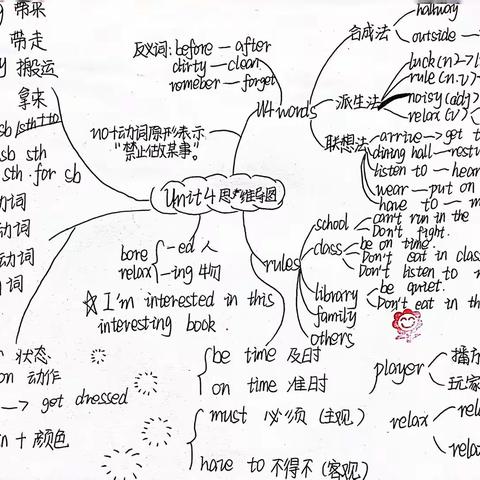 带来
带走
搬运
拿来
sb sth
sth for sb
动词
动词
动词
词
状态
on 动作
→ get dressed
n + 颜色
反义词: before — after
dirty — clean
remeber — forget
U4 words
合成法
hallway
outside —
派生法
luck(n.)
rule(n.v)
noisy(adj)
relax(v)
联想法
arrive — get t
dining hall — rest
listen to — hear
wear — put on
have to — m
no+动词原形表示
"禁止做某事"。
Unit 4 思维导图
bore
relax
-ed 人
-ing 物
☆ I'm interested in this
interesting book.
rules
school
can't run in the
Don't fight.
class
be on time.
Don't eat in clas
Don't listen to
library
be quiet.
Don't eat in th
family
others
be time 及时
on time 准时
must 必须 (主观)
have to 不得不 (客观)
player
播放
玩家
relax
rela
relax